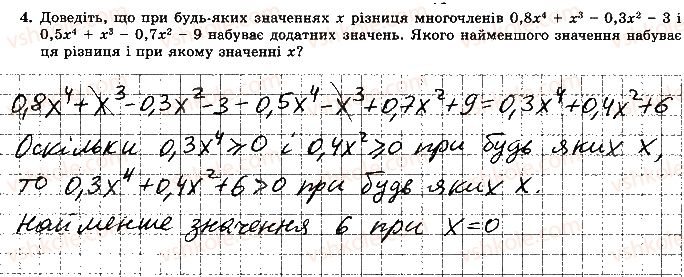 4. Доведіть, що при будь-яких значеннях x різниця многочленів 0,8x⁴ + x³ − 0,3x² − 3 і
0,5x⁴ + x³ − 0,7x² − 9 набуває додатних значень. Якого найменшого значення набуває
ця різниця і при якому значенні x?
0,8x⁴+x³-0,3x²-3-0,5x⁴-x³+0,7x²+9=0,3x⁴+0,4x²+6
Оскільки 0,3x⁴⩾0 і 0,4x²⩾0 при будь яких x,
то 0,3x⁴+0,4x²+6>0 при будь яких x.
Найменше значення 6 при x=0